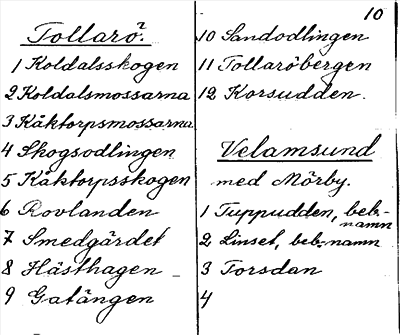 Tollarö?
1 Koldalsskogen
2 Koldalsmossarna
3 Käktorpsmossarna
4 Skogsodlingen
5 Käktorpsskogen
6 Rovlanden
7 Smedgärdet
8 Hästhagen
9 Gatängen
10
10 Sandodlingen
11 Tollaröbergen
12 Korsudden.
Velamsund
med Mörby.
1 Tuppudden, beb.-
namn
2 Linset, beb.-namn
3 Torsdan
4